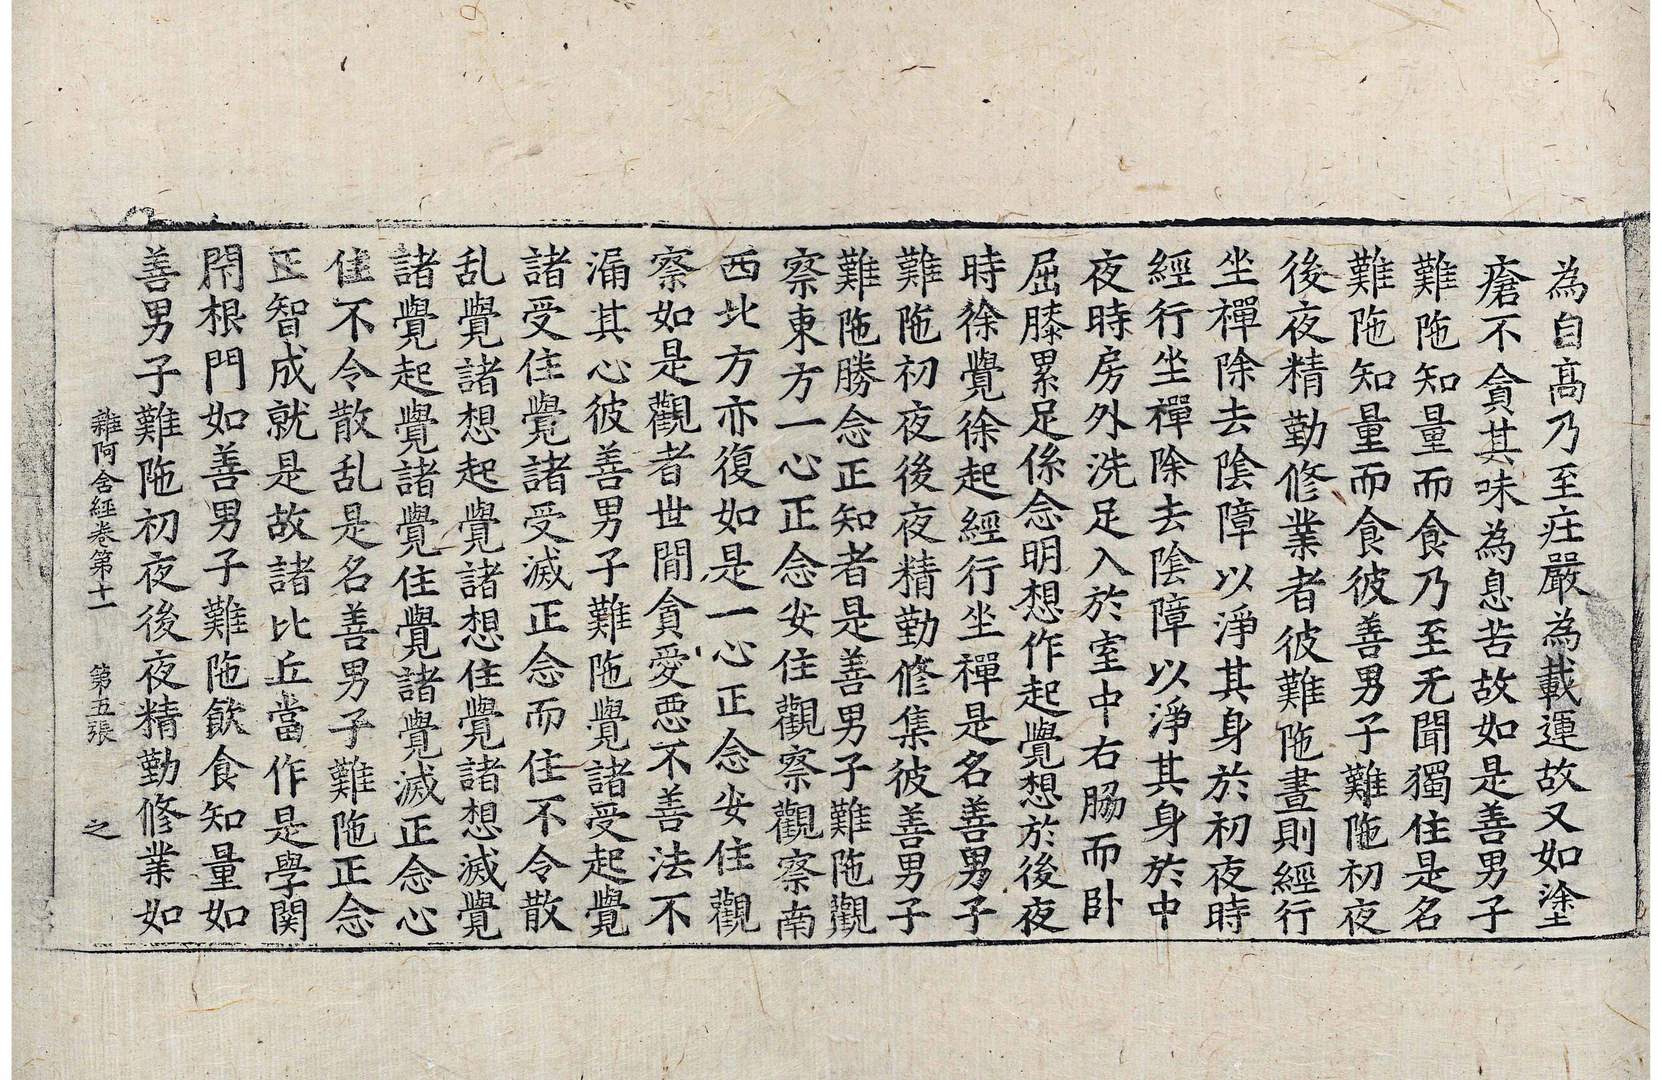 為自高乃至庄嚴為載運故又如塗
瘡不貪其味為息苦故如是善男子
難陁知量而食乃至无聞獨住是名
難陁知量而食彼善男子難陁初夜
後夜精勤修業者彼難陁晝則經行
坐禪除去陰障以淨其身於初夜時
經行坐禪除去陰障以淨其身於中
夜時房外洗足入於室中右脇而卧
屈膝累足係念明想作起覺想於後夜
時徐覺徐起經行坐禪是名善男子
難陁初夜後夜精勤修集彼善男子
難陁勝念正知者是善男子難陁觀
察東方一心正念安住觀察觀察南
西北方亦復如是一心正念安住觀
察如是觀者世間貪愛惡不善法不
漏其心彼善男子難陁覺諸受起覺
諸受住覺諸受滅正念而住不令散
乱覺諸想起覺諸想住覺諸想滅覺
諸覺起覺諸覺住覺諸覺滅正念心
住不令散乱是名善男子難陁正念
正智成就是故諸比丘當作是學関
閇根門如善男子難陁飲食知量如
善男子難陁初夜後夜精勤修業如
雜阿含經卷第十一 第五張 之